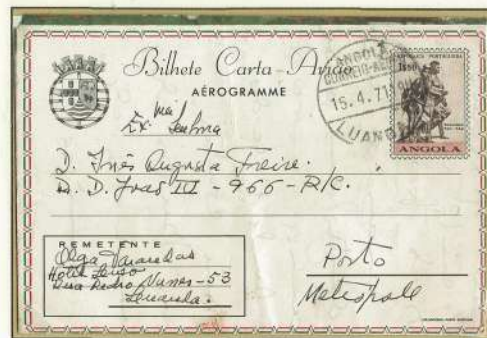 Bilhete Carta-Avião
AÉROGRAMME
ANGOLA
CORREIO AÉREO
15.4.71
LUANDA
REPÚBLICA PORTUGUESA
1$50
ANGOLA
Ex.ma Senhora
D. Inês Augusta Freire.
R. D. João III - 966 - R/C.
Porto
Metropole
REMETENTE
Olga
Hotel Luso
Rua Pedro Nunes - 53
Luanda.